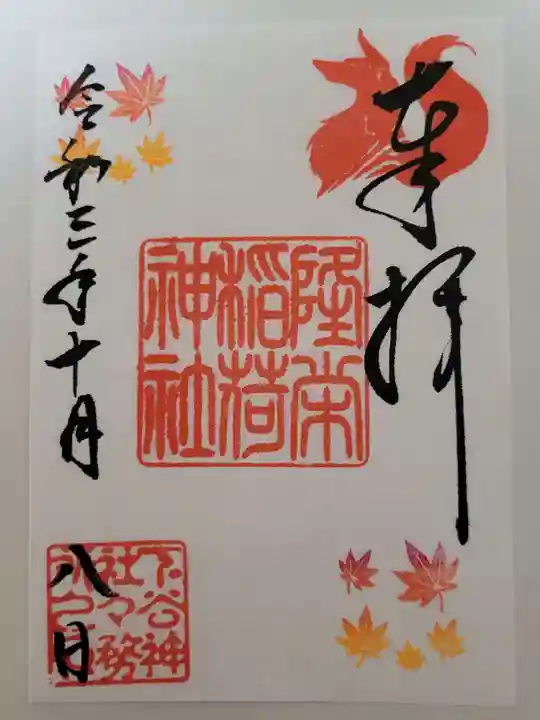 奉拝
隆栄
稲荷
神社
令和三年十月八日
下谷神
社々務
所之印